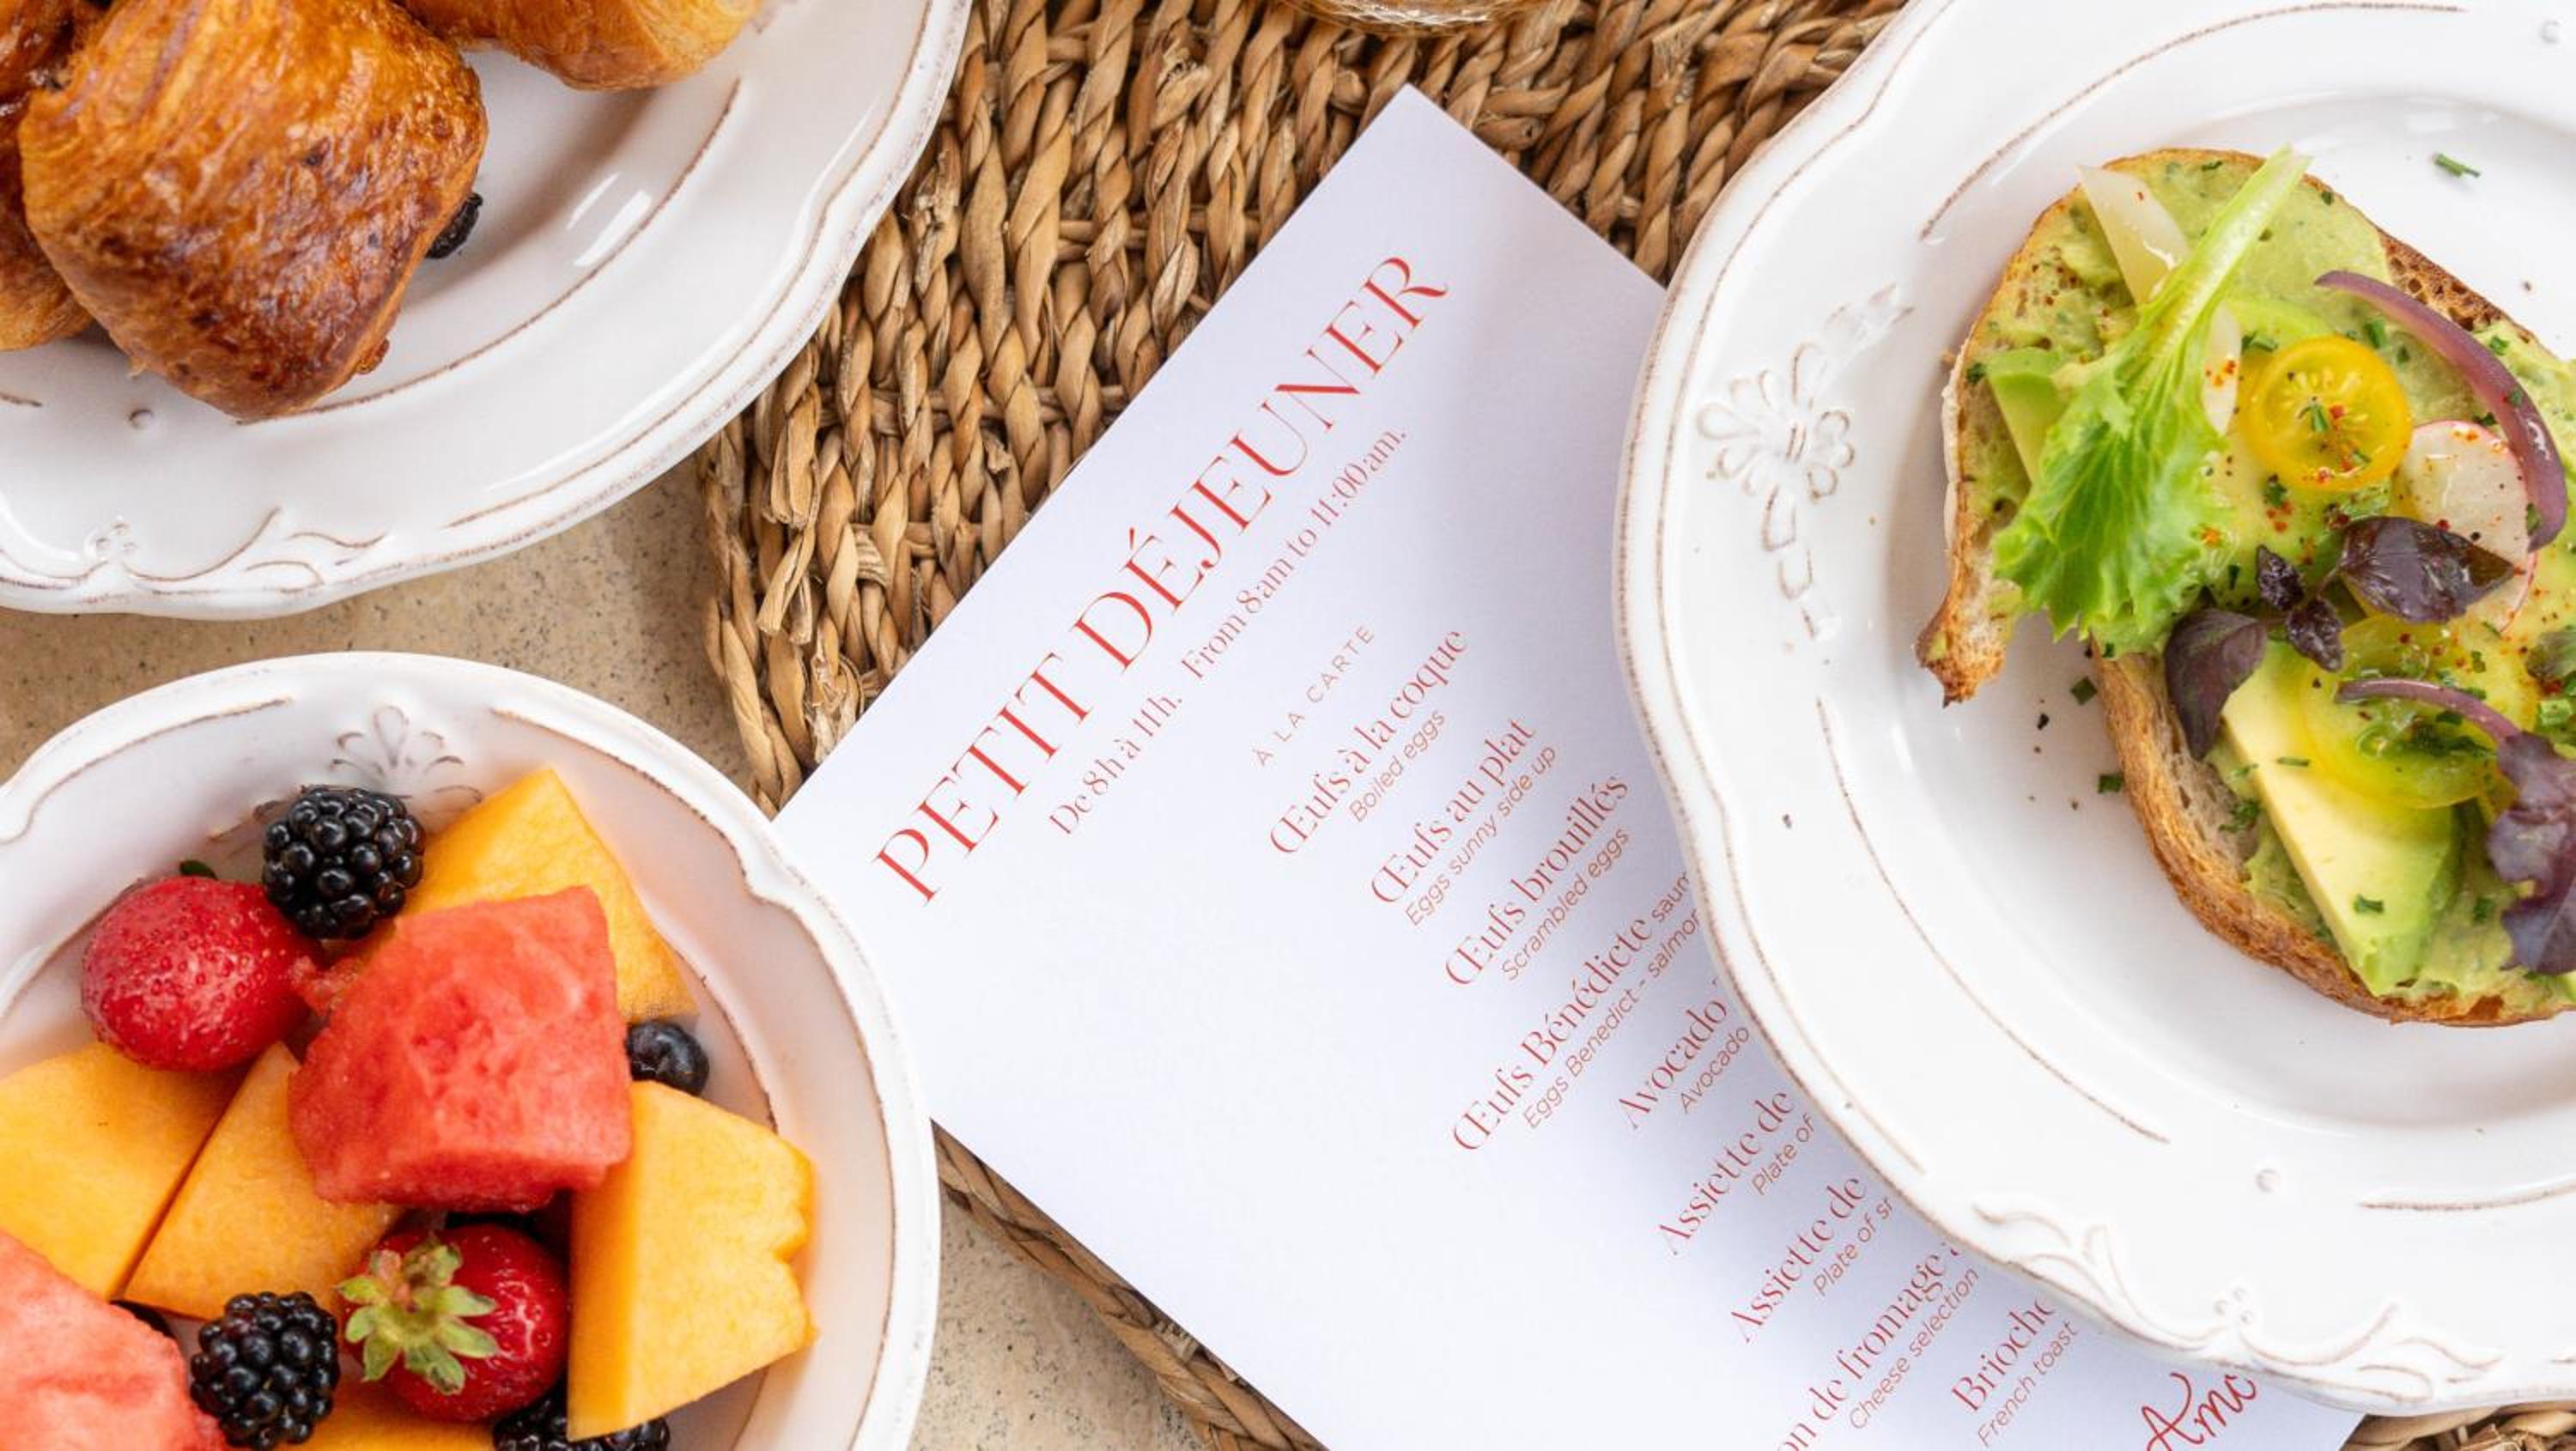 PETIT DÉJEUNER
De 8h à 11h. From 8am to 11:00am.
À LA CARTE
Œufs à la coque
Boiled eggs
Œufs au plat
Eggs sunny side up
Œufs brouillés
Scrambled eggs
Œufs Bénédicte saum
Eggs Benedict - salmon
Avocado
Avocado
Assiette de
Plate of
Assiette de
Plate of
de fromage
Cheese selection
Brioche
French toast